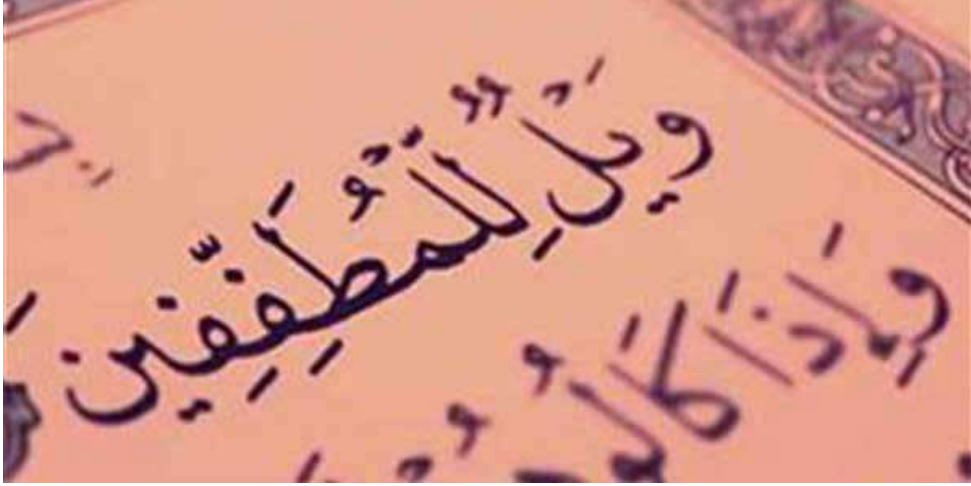 وَيْلٌ لِّلْمُطَفِّفِينَ
وَإِذَا كَالُو